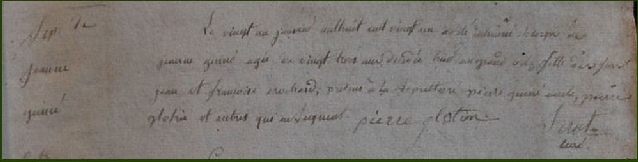 Sep. de
jeanne
guiné
Le vingt un janvier mil huit cent vingt un a été inhumé le corps de
jeanne guiné agée de vingt trois ans, décédée hier au grand fille de feu
jean et françoise rochard, présens à la sépulture pierre guiné oncle, pierre
glotin et autres qui ne signent pierre gloton
curé